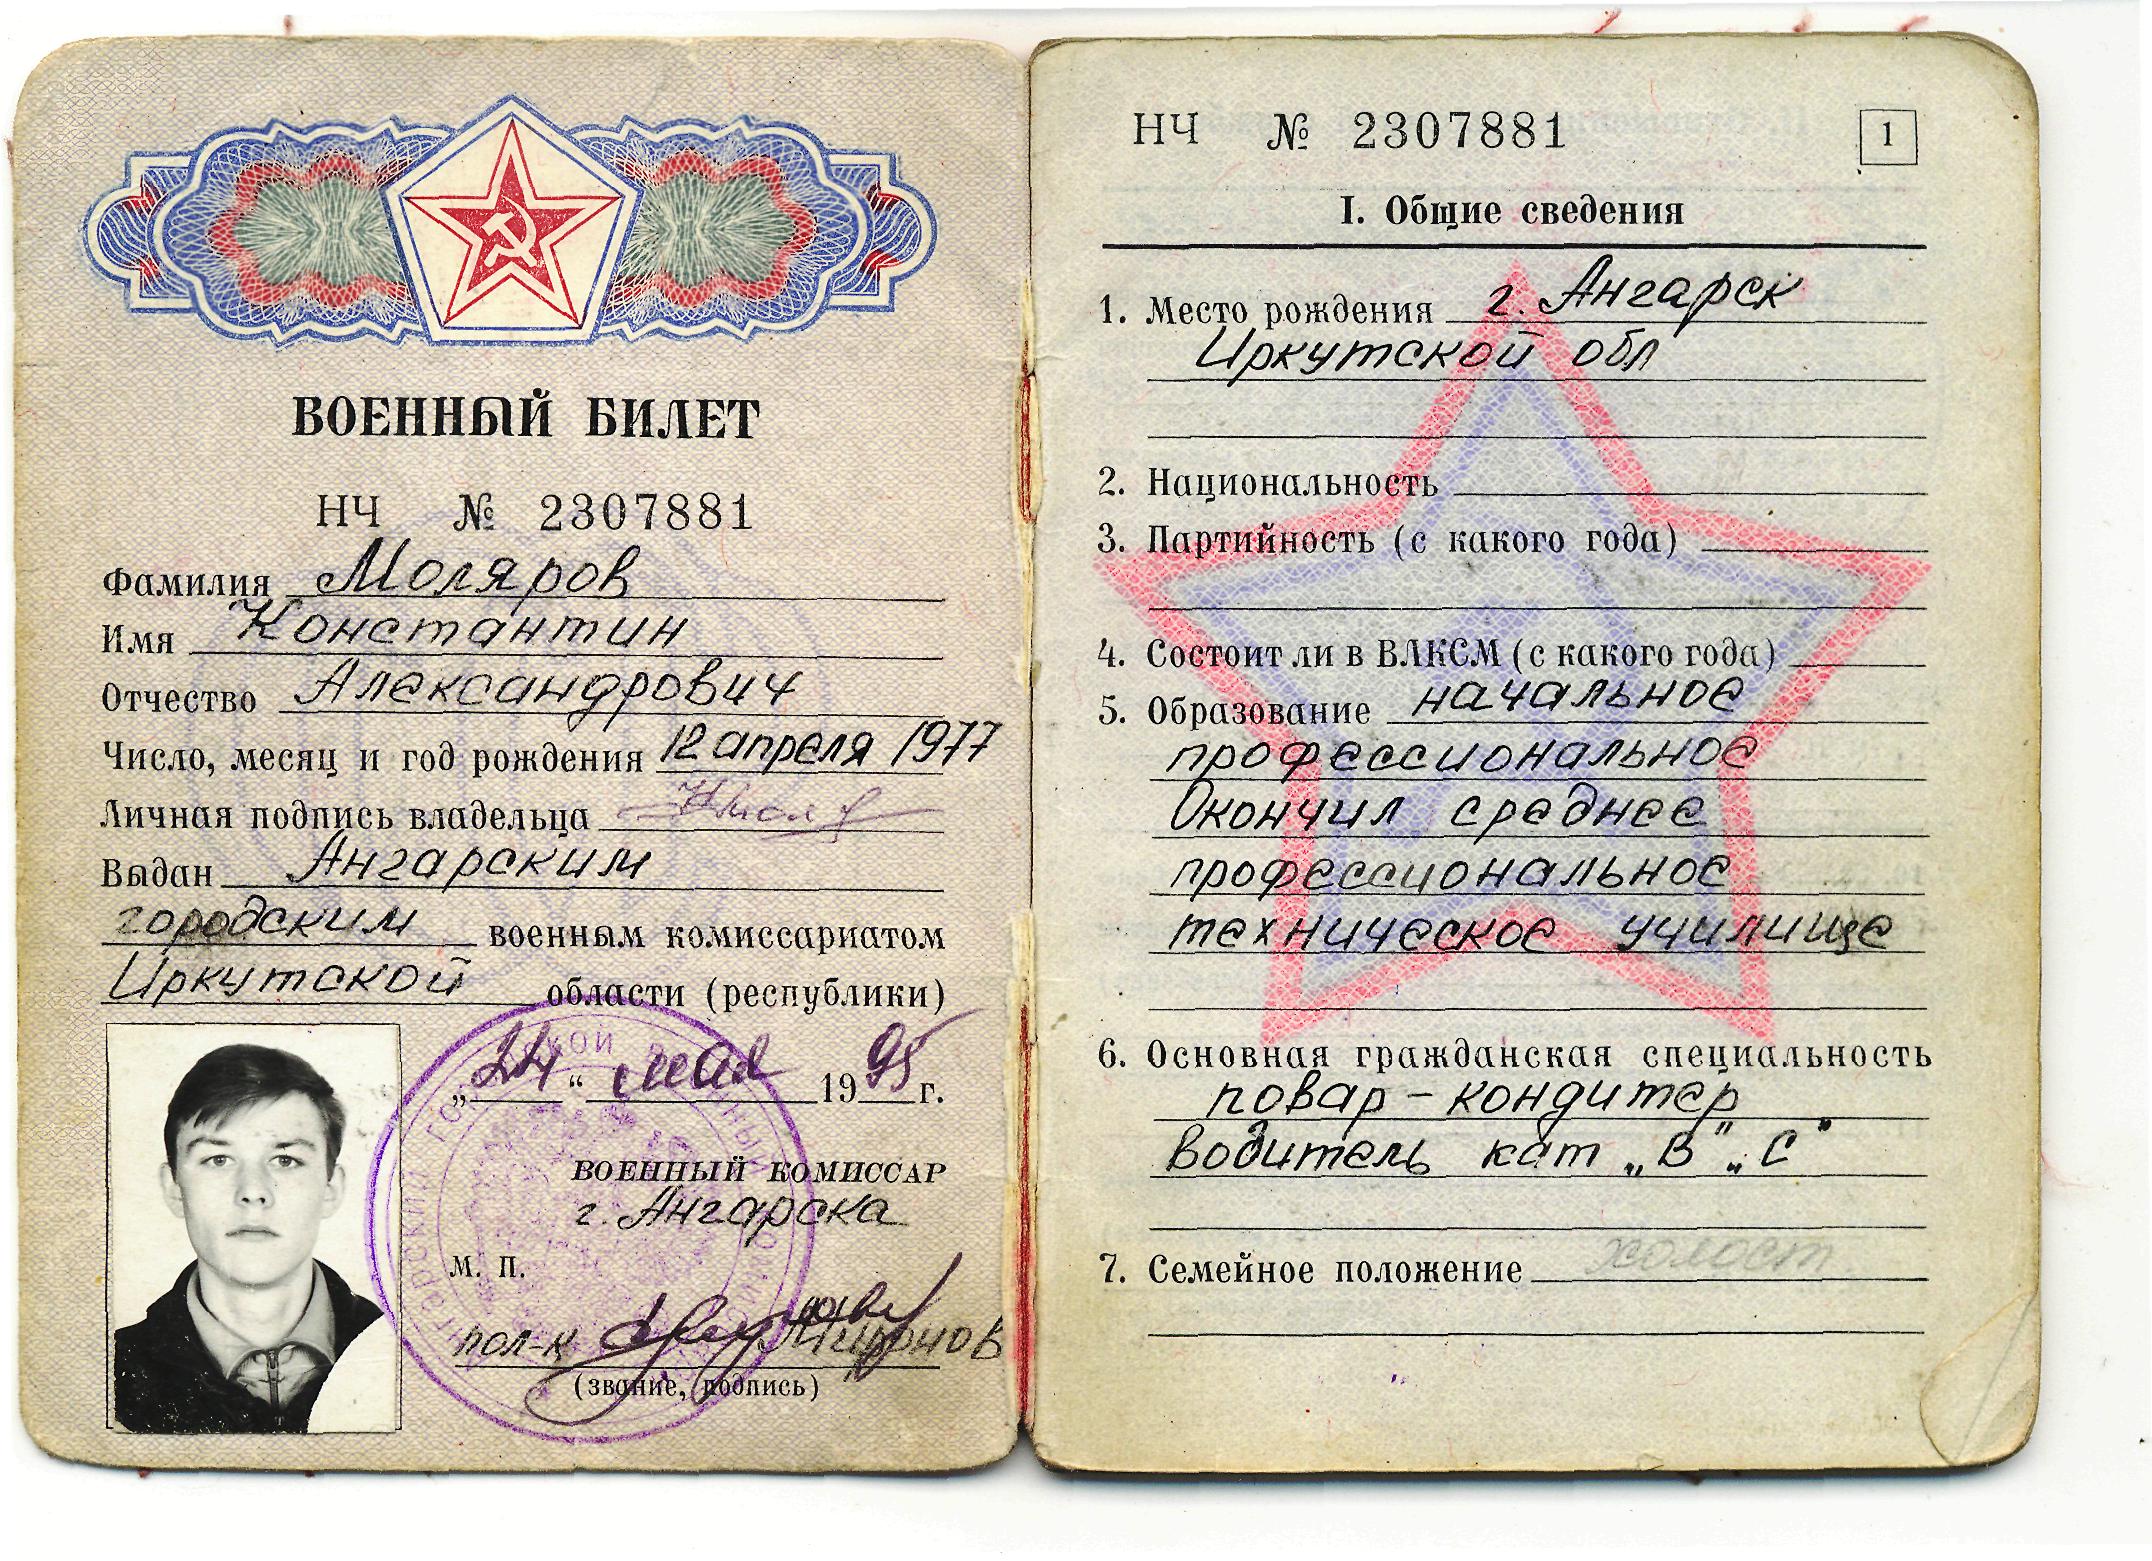 ВОЕННЫЙ БИЛЕТ
НЧ № 2307881
Фамилия Моляров
Имя Константин
Отчество Александрович
Число, месяц и год рождения 12 апреля 1977
Личная подпись владельца
Выдан Ангарским
городским военным комиссариатом
Иркутской области (республики)
„24“ мая 1995 г.
ВОЕННЫЙ КОМИССАР
г. Ангарска
М. П.
пол-к Миронов
(звание, подпись)
НЧ № 2307881
1
I. Общие сведения
1. Место рождения г. Ангарск
Иркутской обл
2. Национальность
3. Партийность (с какого года)
4. Состоит ли в ВЛКСМ (с какого года)
5. Образование начальное
профессиональное
Окончил среднее
профессиональное
техническое училище
6. Основная гражданская специальность
повар-кондитер
водитель кат „В" „С"
7. Семейное положение холост